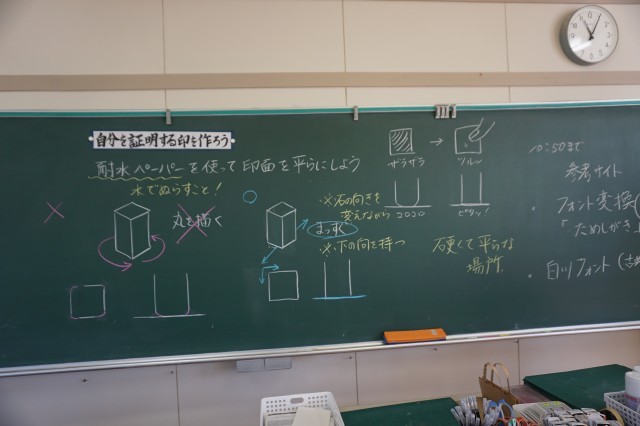 自分を証明する印を作ろう
耐水ペーパーを使って印面を平らにしよう
水でぬらすこと！
×
丸を描く
○
まっすぐ
※石の向きを
変えながら
※下の向を持つ
ザラザラ
→
ツルー
ピタッ！
硬くて平らな
場所
10:50まで
参考サイト
フォント変換（
「ためしがき」
・白川フォント（古